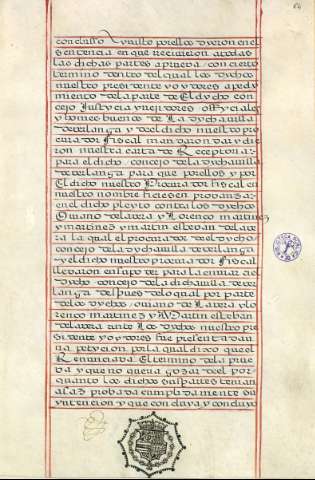 concluso y visto por ellos dyeron en el
sentencia en que recivieron a todas
las dichas partes a prueva con cierto
termino dentro del qual los dychos
nuestro presidente y oydores a pedy
myento de la parte de El dycho con
cejo Justycia y rejidores offyciales
y homes buenos de La dycha villa
de verlanga y de el dicho nuestro pro
curador Fiscal mandaron dar y die
ron nuestra carta de Receptoria
para el dicho concejo de la dycha villa
de verlanga para que por ellos y por
El dicho nuestro Procurador fiscal en
nuestro nombre ficiesen provanzas
en el dicho pleyto contra los dychos
de Lavera y Lorenco martinez
y martines y martin esteban de lave
ra la qual el procurador de el dycho
concejo de la dycha villa de verlanga
y el dicho nuestro procurador Fiscal
llevaron en su poder para la enviar a el
dycho concejo de la dicha villa de ver
langa despues de lo qual por parte
de los dychos de Lavera y lo
renco martinez y Martin esteban
de lavera ante Los dychos nuestro pre
sidente y oydores fue presentada
una petycion por la qual dixo que el
Renunciava El termino de la prue
va y que no queria gozar de el por
quanto los dichos sus partes tenian
asaz probada cumplidamente su
yntencion y que concluya y concluyo